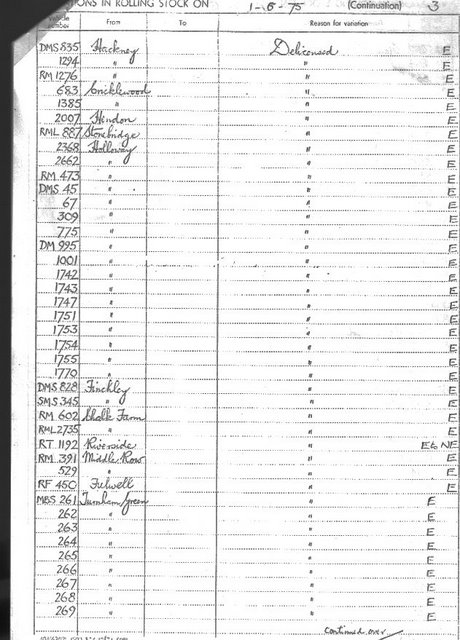 IONS IN ROLLING STOCK ON 1-6-75 (Continuation) 3
Vehicle number From To Reason for variation
DMS 835 Hackney Delicensed E
1294 " " E
RM 1276 " " E
683 Cricklewood " E
1385 " " E
2007 Hendon " E
RML 887 Stonebridge " E
2368 Holloway " E
2662 " " E
RM 473 " " E
DMS 45 " " E
67 " " E
309 " " E
775 " " E
DM 995 " " E
1001 " " E
1742 " " E
1743 " " E
1747 " " E
1751 " " E
1753 " " E
1754 " " E
1755 " " E
1770 " " E
DMS 828 Finchley " E
SMS 345 " " E
RM 602 Chalk Farm " E
RML 2735 " " E
RT 1192 Riverside " E & NF
RM 391 Middle Row " E
529 " " E
RF 450 Fulwell " E
MBS 261 Turnham/green " E
262 " " E
263 " " E
264 " " E
265 " " E
266 " " E
267 " " E
268 " " E
269 " " E
continued over